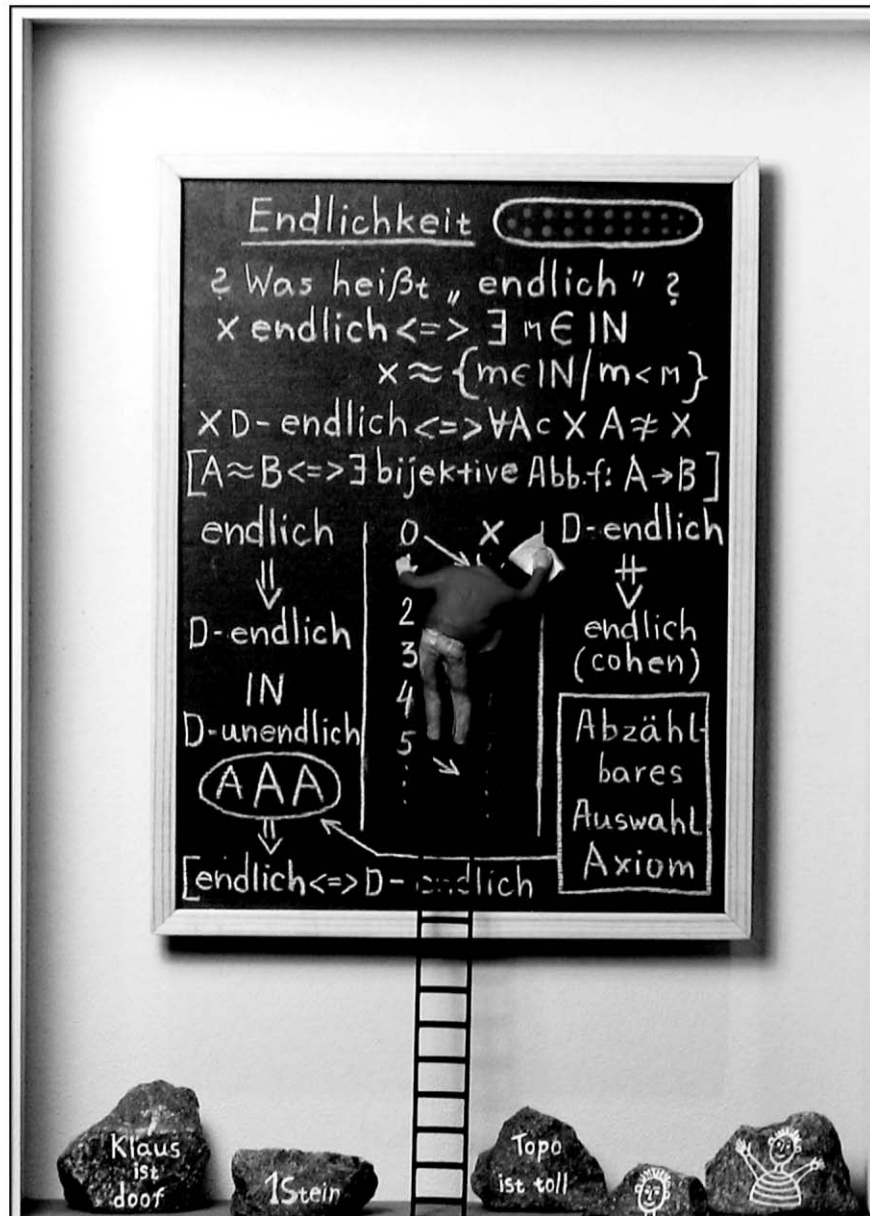 Endlichkeit
? Was heißt „ endlich " ?
x endlich <=> ∃ n ∈ IN
x ≈ {m ∈ IN / m < n}
X D-endlich <=> ∀A ⊂ X A ≉ X
[A ≈ B <=> ∃ bijektive Abb. f: A → B]
endlich
⇓
D-endlich
IN
D-unendlich
AAA
⇓
[endlich <=> D-endlich
0 x
2
3
4
5
D-endlich
⇓
endlich
(cohen)
Abzähl-
bares
Auswahl
Axiom
Klaus
ist
doof
1Stein
Topo
ist toll